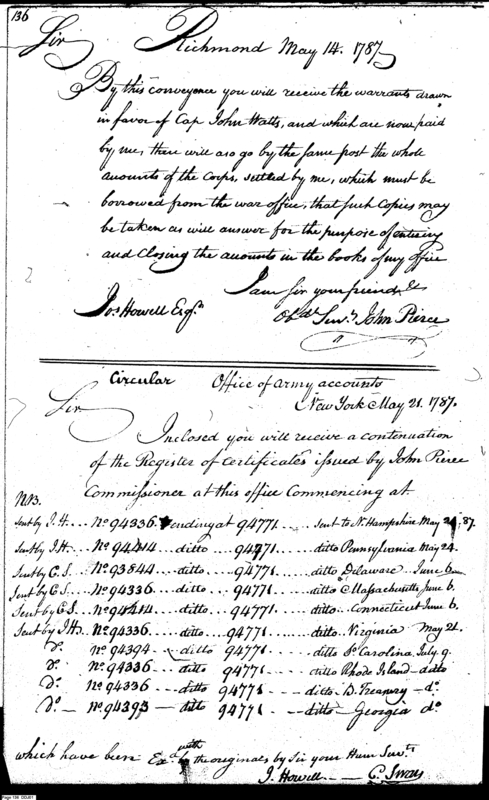 136
Sir Richmond May 14. 1787
By this conveyence you will receive the warrants drawn
in favor of Cap John Watts, and which are now paid
by me, there will aso go by the same post the whole
amounts of the Corps, settled by me, which must be
borrowed from the war office, that such Copies may
be taken as will answer for the purpose of entering
and Closing the accounts in the books of my office
I am sir your friend &
Jos Howell Esqr. Obdt Servt John Pierce
Circular Office of army accounts
Sir New York May 21. 1787.
Inclosed you will receive a contenuation
of the Register of Certificates issued by John Pierce
Commissioner at this office Commencing at
N.B.
Sent by J. H. No 94336 & ending at 94771 sent to N. Hampshire May 87.
Sent by J. H. No 94414 ditto 94771 ditto Pennsylvania May 24.
Sent by C. S. No 93844 ditto 94771 ditto Delaware June 6
Sent by C. S. No 94336 ditto 94771 do Massachusetts June 6.
Sent by C. S. No 94414 ditto 94771 ditto Connecticut June 6.
Sent by J. H. No 94336 ditto 94771 ditto Virginia May 21.
do. No 94394 ditto 94771 ditto So Carolina, July 9.
do. No 94336 ditto 94771 ditto Rhode Island ditto
Do. No 94336 ditto 94771 ditto B. Treasury do.
Do No 94393 ditto 94771 ditto Georgia do.
which have been Exd with the originals by Sir your Hum Servts
J. Howell C. Swan
Page 136